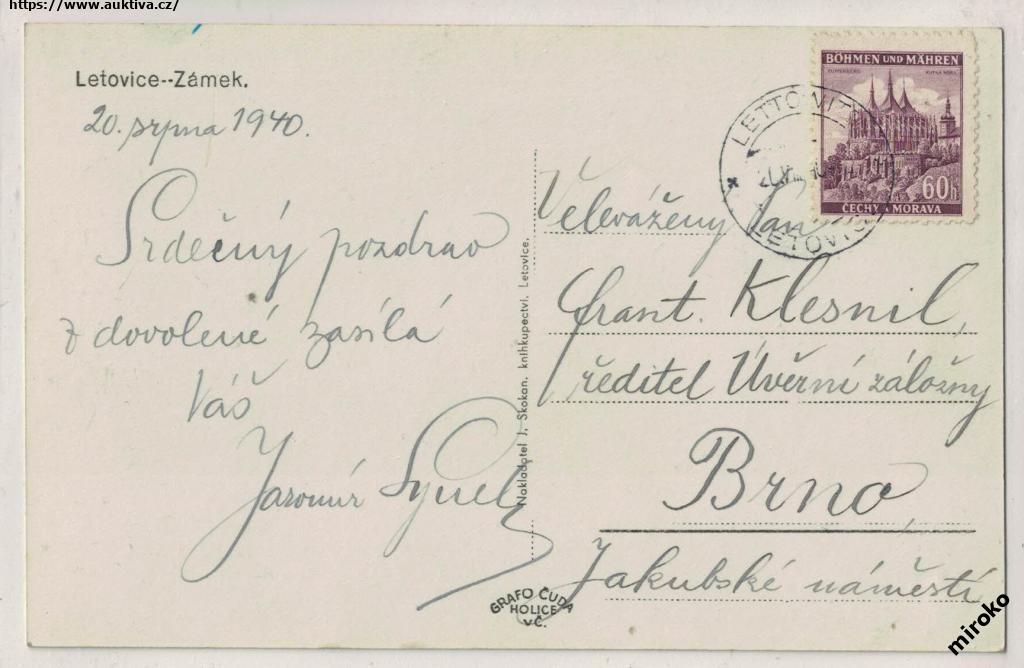 https://www.auktiva.cz/
Letovice--Zámek.
20. srpna 1940.
Srdečný pozdrav
z dovolené zasílá
Váš
Jaromír
Nakladatel J. Skokan, knihkupectví, Letovice.
GRAFO ČUDA
HOLICE
v.Č.
BÖHMEN UND MÄHREN
60h
ČECHY A MORAVA
LETTOWITZ
LETOVICE
Velevážený Pán
frant. Klesnil,
ředitel Úvěrní záložny
Brno,
Jakubské náměstí
miroko